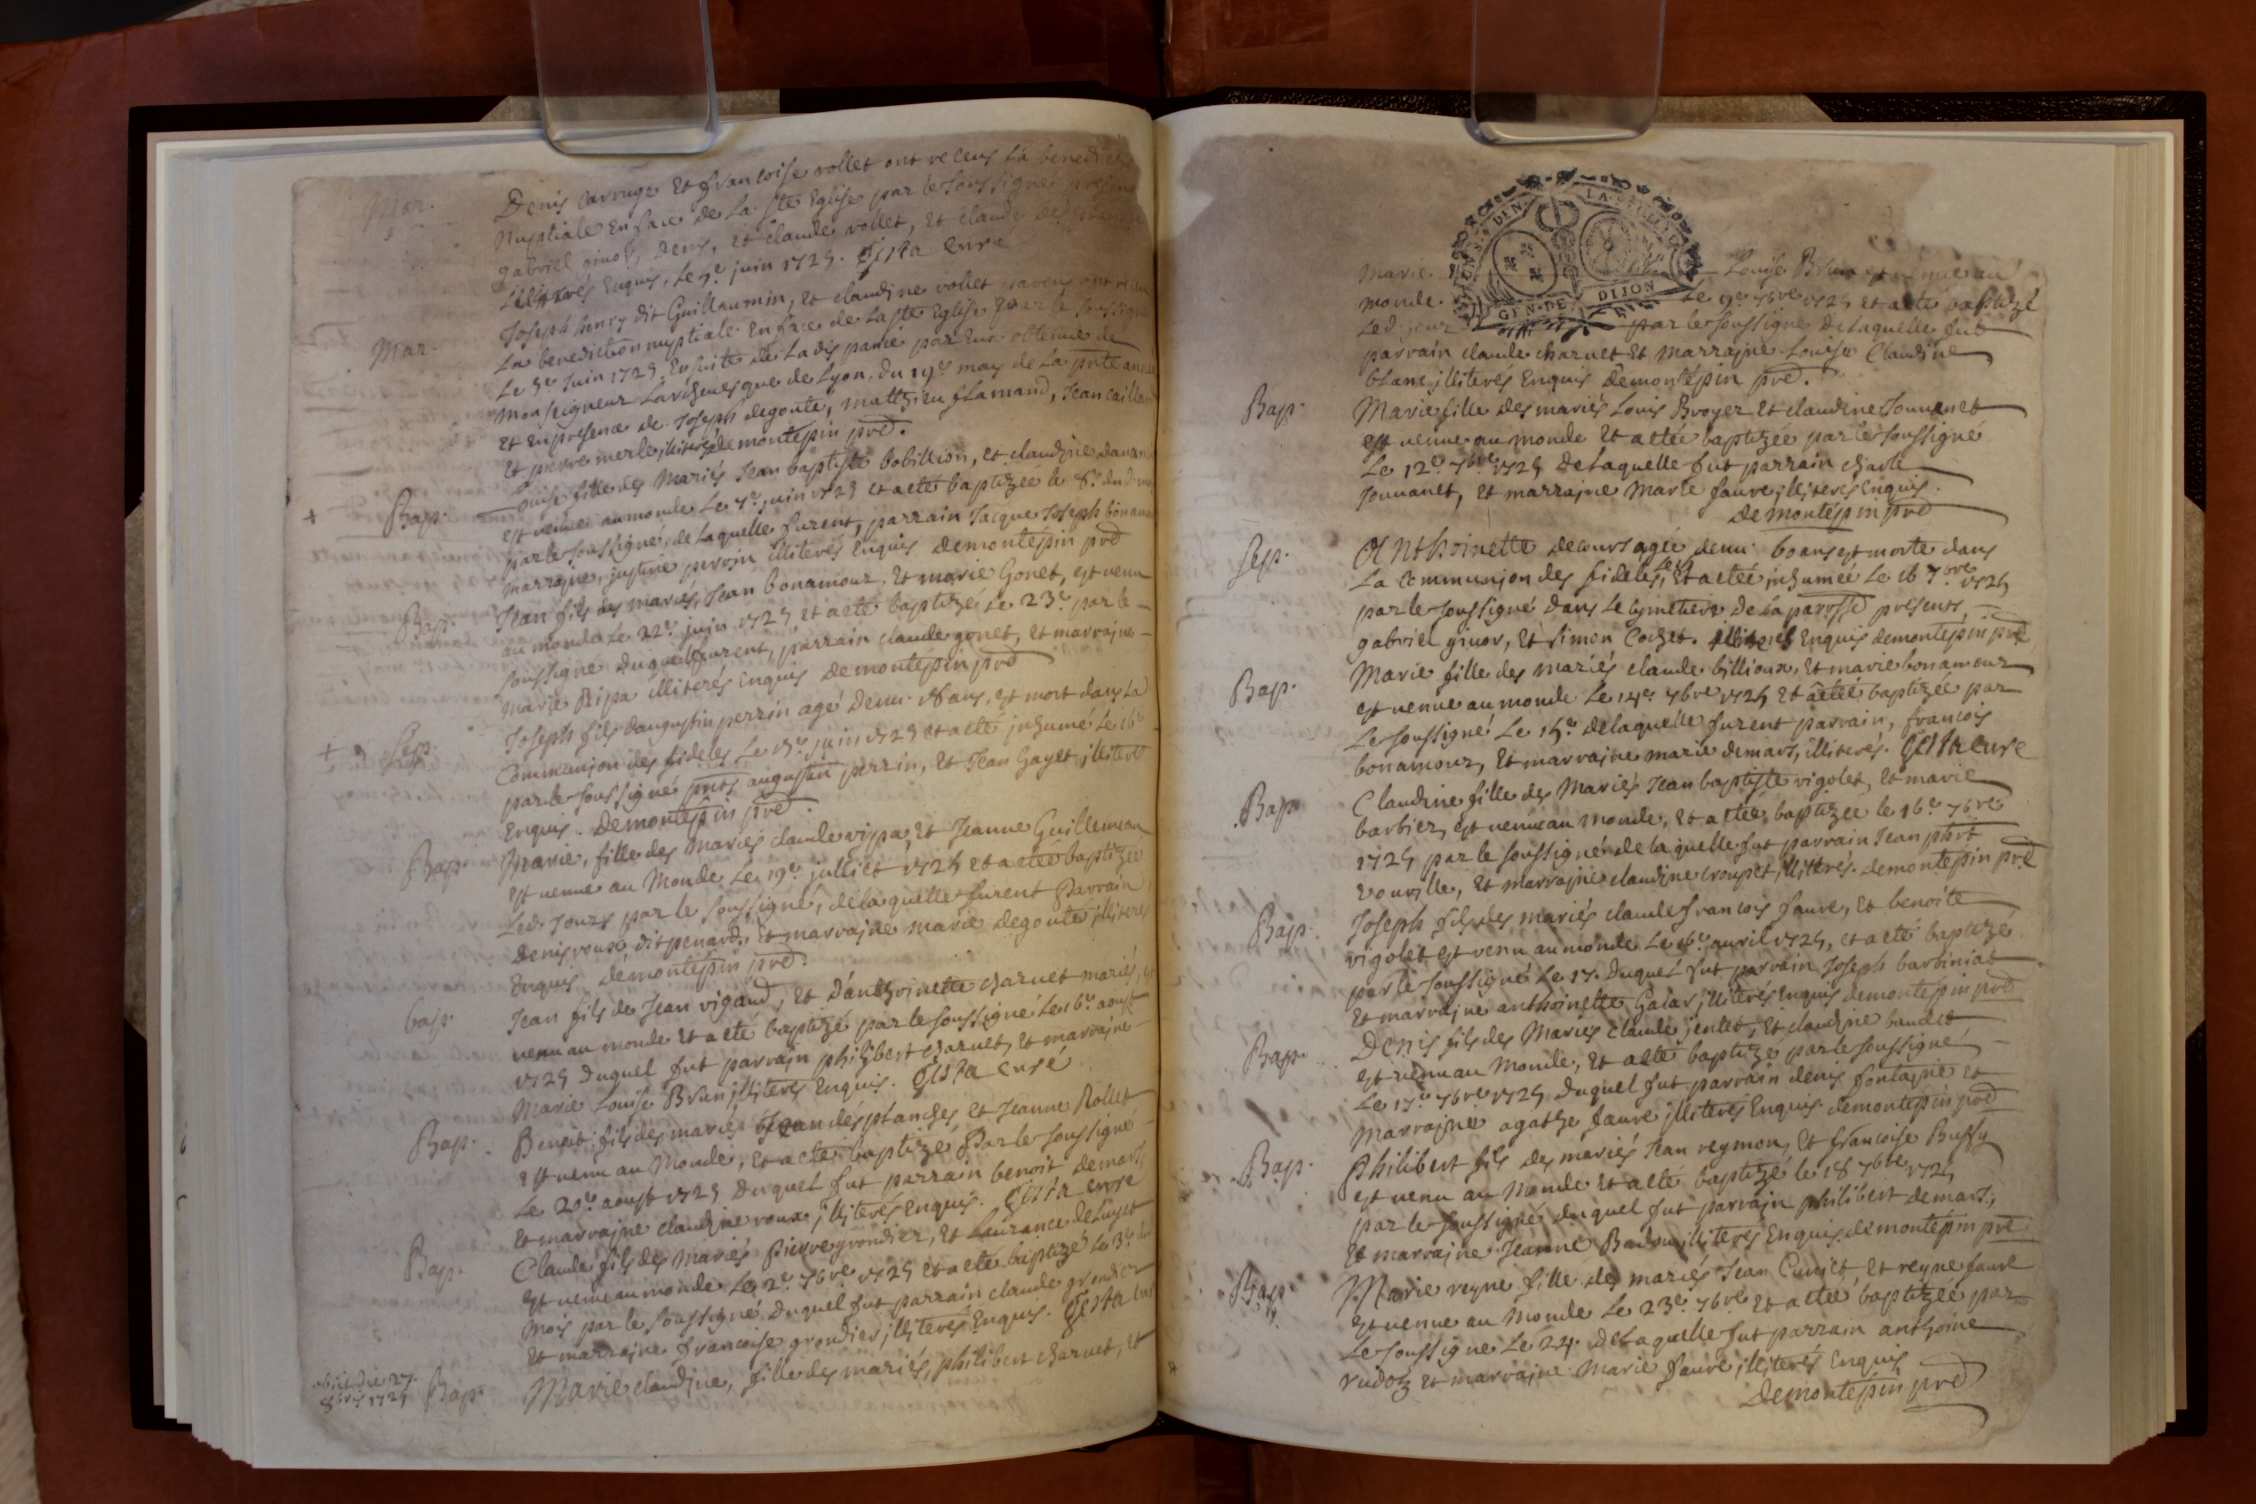 Mar.
Denis Carruge Et francoise vollet ont receus la benedict
Nuptiale En face de La Ste Eglise par le soussigné
gabriel givor, Denis, et claude vollet, Et claude
Illiterés Enquis, Le juin 1725. Gista Curé
Mar.
Joseph henry dit Guillaumin, Et claudine vollet
La benediction nuptiale En face de La Ste Eglise par le soussigné
Le juin 1725. Ensuite de La dispance par Eux obtenue de
Monseigneur L'archevesque de Lyon, du 19e may de La pnte année
Et En presence de Joseph degoute, matthieu flamand, Jean caillau
Et pierre merle, illiterés demontépin pred.
Bap.
Louise fille des Mariés Jean baptiste bobillion, et claudine
est venue au monde Le 7e juin 1725 et a eté baptizée le 8e du
par le soussigné, de Laquelle furent, parrain Jacque Joseph bonamour
marraine, justine peroin illiterés Enquis demontépin pred
Bap.
Jean fils des mariés, Jean bonamour, Et marie Gonet, est venu
au monde Le 22e juin 1725 et a eté baptizé Le 23e par le
soussigné duquel furent, parrain claude gonet, Et marraine
marie Ripa illiterés Enquis demontépin pred
Sep.
Joseph fils d'augustin perrin agé d'env. ans, est mort dans La
Communion des fideles Le juin 1725 et a eté inhumé Le 16e
par le soussigné pnts augustin perrin, Et Jean Gayet illiterés
Enquis. Demontépin pred.
Bap.
Marie, fille des mariés claude rippa, Et Jeanne Guillemeau
est venue au Monde Le 19e julliet 1725 et a eté baptizée
Led. Jour par le soussigné, de laquelle furent Parrain
Denis roux dit penard, Et marraine marie degoute illiterés
Enquis demontépin pred.
bap.
Jean fils de Jean vigaud, Et D'anthoinette charnet mariés, est
venu au monde Et a eté baptizé par le soussigné Le 16e aoust
1725 duquel fut parrain philibert charnet, Et marraine
Marie Louise Brun illiterés Enquis. Gista Curé
Bap.
Benoit fils des mariés Jean desplanches Et Jeanne Rollet
Est venu au Monde, Et a eté baptizé Par le soussigné
Le 20e aoust 1725 Duquel fut parrain benoit demars
Et marraine claudine roux illiterés Enquis. Gista Curé
Bap.
Claude fils des Mariés Pierre grondier, Et Laurance deluyet
Est venu au monde Le 2e 7bre 1725 et a eté baptizé Le 3e du
Mois par le soussigné Duquel fut parrain claude grondier
Et marraine francoise grondier, illiterés Enquis. Gista Curé
8bris 1725
Bap.
Marie claudine, fille des mariés, philibert charnet, Et
GEN. DE DIJON
Marie Louise Brun est venue au
monde Le 9e 7bre 1725 Et a eté baptizé
Led. jour par le soussigné de Laquelle fut
parrain claude charnet Et Marraine Louise Claudine
blanc illiterés Enquis Demontépin pred.
Bap.
Marie fille des mariés Louis Broyer Et claudine Jouuanet
est venue au monde Et a etée baptizée par le soussigné
Le 12e 7bre 1725 De Laquelle fut parrain charle
Jouuanet, et marraine Marie faure, illiterés Enquis.
Demontépin pred
Sep.
Anthoinette decours agée denv. 60 ans est morte dans
La Communion des fideles, Et a etée inhumée Le 16 7bre 1725
par le soussigné Dans Le Cymetiere De La paroisse presents,
gabriel givor, Et simon Cochet. illiterés Enquis demontépin pred
Bap.
Marie fille des mariés claude billioux, Et marie bonamour
est venue au monde Le 14e 7bre 1725 Et a etée baptizée par
Le soussigné Le 15e de laquelle furent parrain, francois
bonamour, Et marraine marie demars, illiterés. Gista Curé
Bap.
Claudine fille des Mariés Jean baptiste vigolet, Et marie
barbier, est venue au monde, Et a etée baptizée le 16e 7bre
1725 par le soussigné de laquelle fut parrain Jean
vourlle, Et marraine claudine croupet, illiterés. demontépin pred
Bap.
Joseph fils des mariés claude francois faure, Et benoite
vigolet est venu au monde Le 16e auril 1725, et a eté baptizé
par le soussigné Le 17. Duquel fut parrain Joseph barbiniat
Et marraine anthoinette Galar, illiterés Enquis demontépin pred
Bap.
Denis fils des Mariés Claude jentet, Et claudine baudet
est venu au Monde, Et a eté baptizé par le soussigné
Le 17e 7bre 1725 Duquel fut parrain denis fontaine Et
Marraine agathe faure illiterés Enquis. demontépin pred
Bap.
Philibert fils des mariés Jean reymon, Et francoise Bussy
est venu au Monde Et a eté baptizé le 18 7bre 1725
par le soussigné duquel fut parrain philibert demars,
Et marraine Jeanne illiterés Enquis, demontépin pred
Bap.
Marie reyne fille des mariés Jean Cunjet Et reyne faure
est venue au Monde Le 23e 7bre Et a etée baptizée par
Le soussigné Le 24. De Laquelle fut parrain anthoine
rudoz Et marraine Marie faure, illiterés Enquis
Demontépin pred